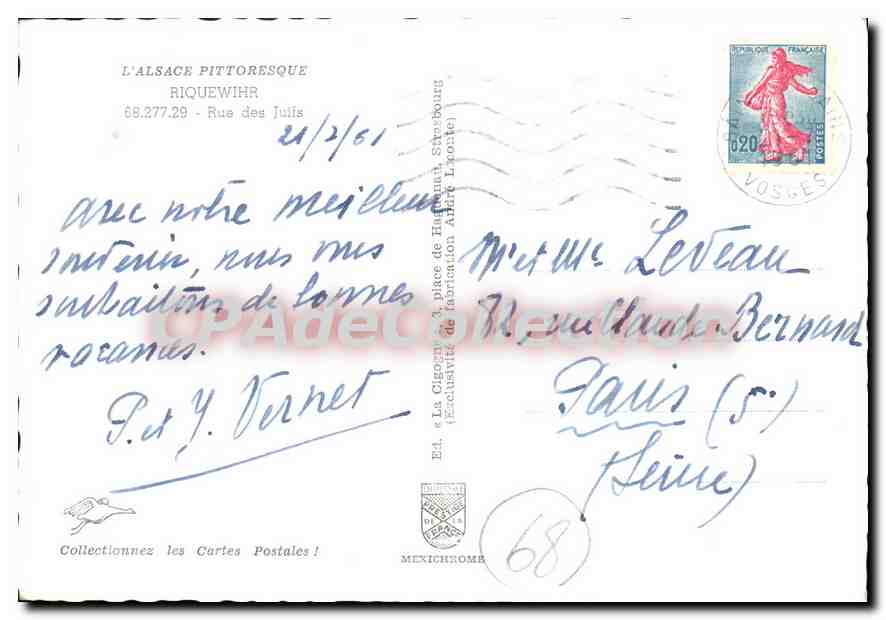 L'ALSACE PITTORESQUE
RIQUEWIHR
68.277.29 - Rue des Juifs
21/2/61
avec notre meilleur
souvenir, nous vous
souhaitons de bonnes
vacances.
P. et Y. Vernet
Collectionnez les Cartes Postales !
Ed. « La Cigogne », 3, place de Haguenau, Strasbourg
(Exclusivité de fabrication André Leconte)
PRESTIGE
DE LA
FRANCE
MEXICHROME
REPUBLIQUE FRANÇAISE
0,20
POSTES
VOSGES
Mr et Me Leveau
82, rue Claude Bernard
Paris (5)
(Seine)
68
CPAdeCollection